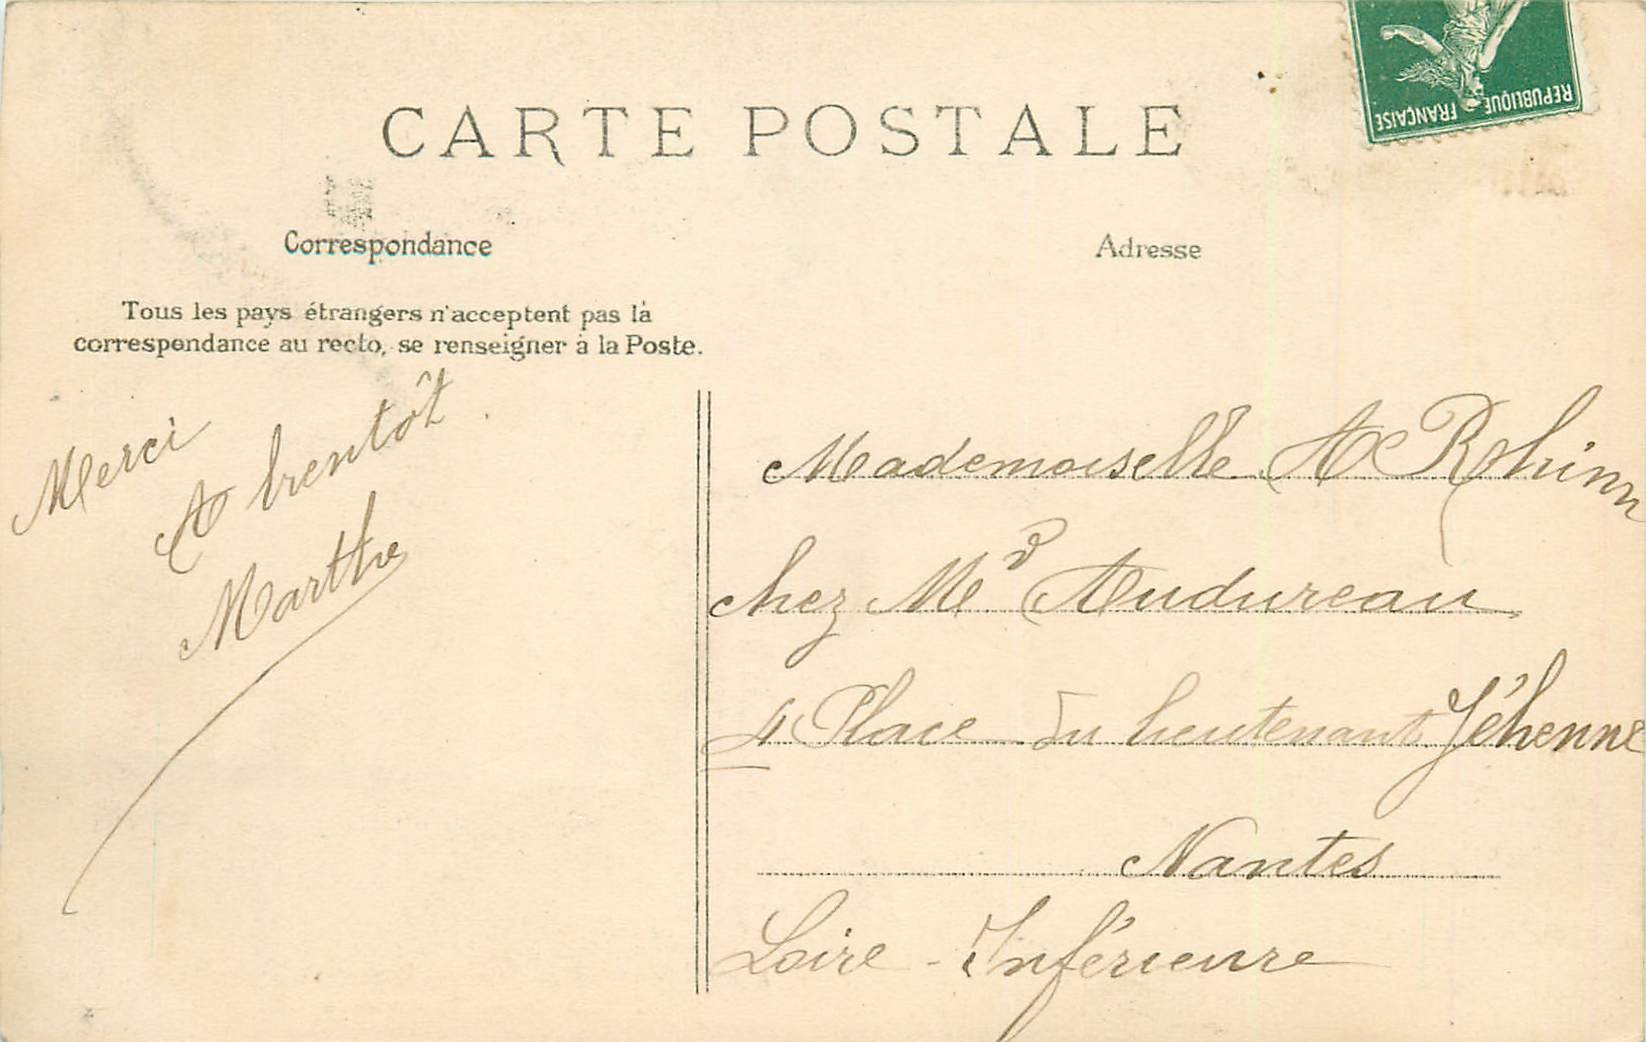 CARTE POSTALE
RÉPUBLIQUE FRANÇAISE
Correspondance
Adresse
Tous les pays étrangers n'acceptent pas la
correspondance au recto, se renseigner à la Poste.
Merci
A bientôt
Marthe
Mademoiselle A
chez Md Audureau
4 Place du lieutenant Jéhenne
Nantes
Loire-Inférieure